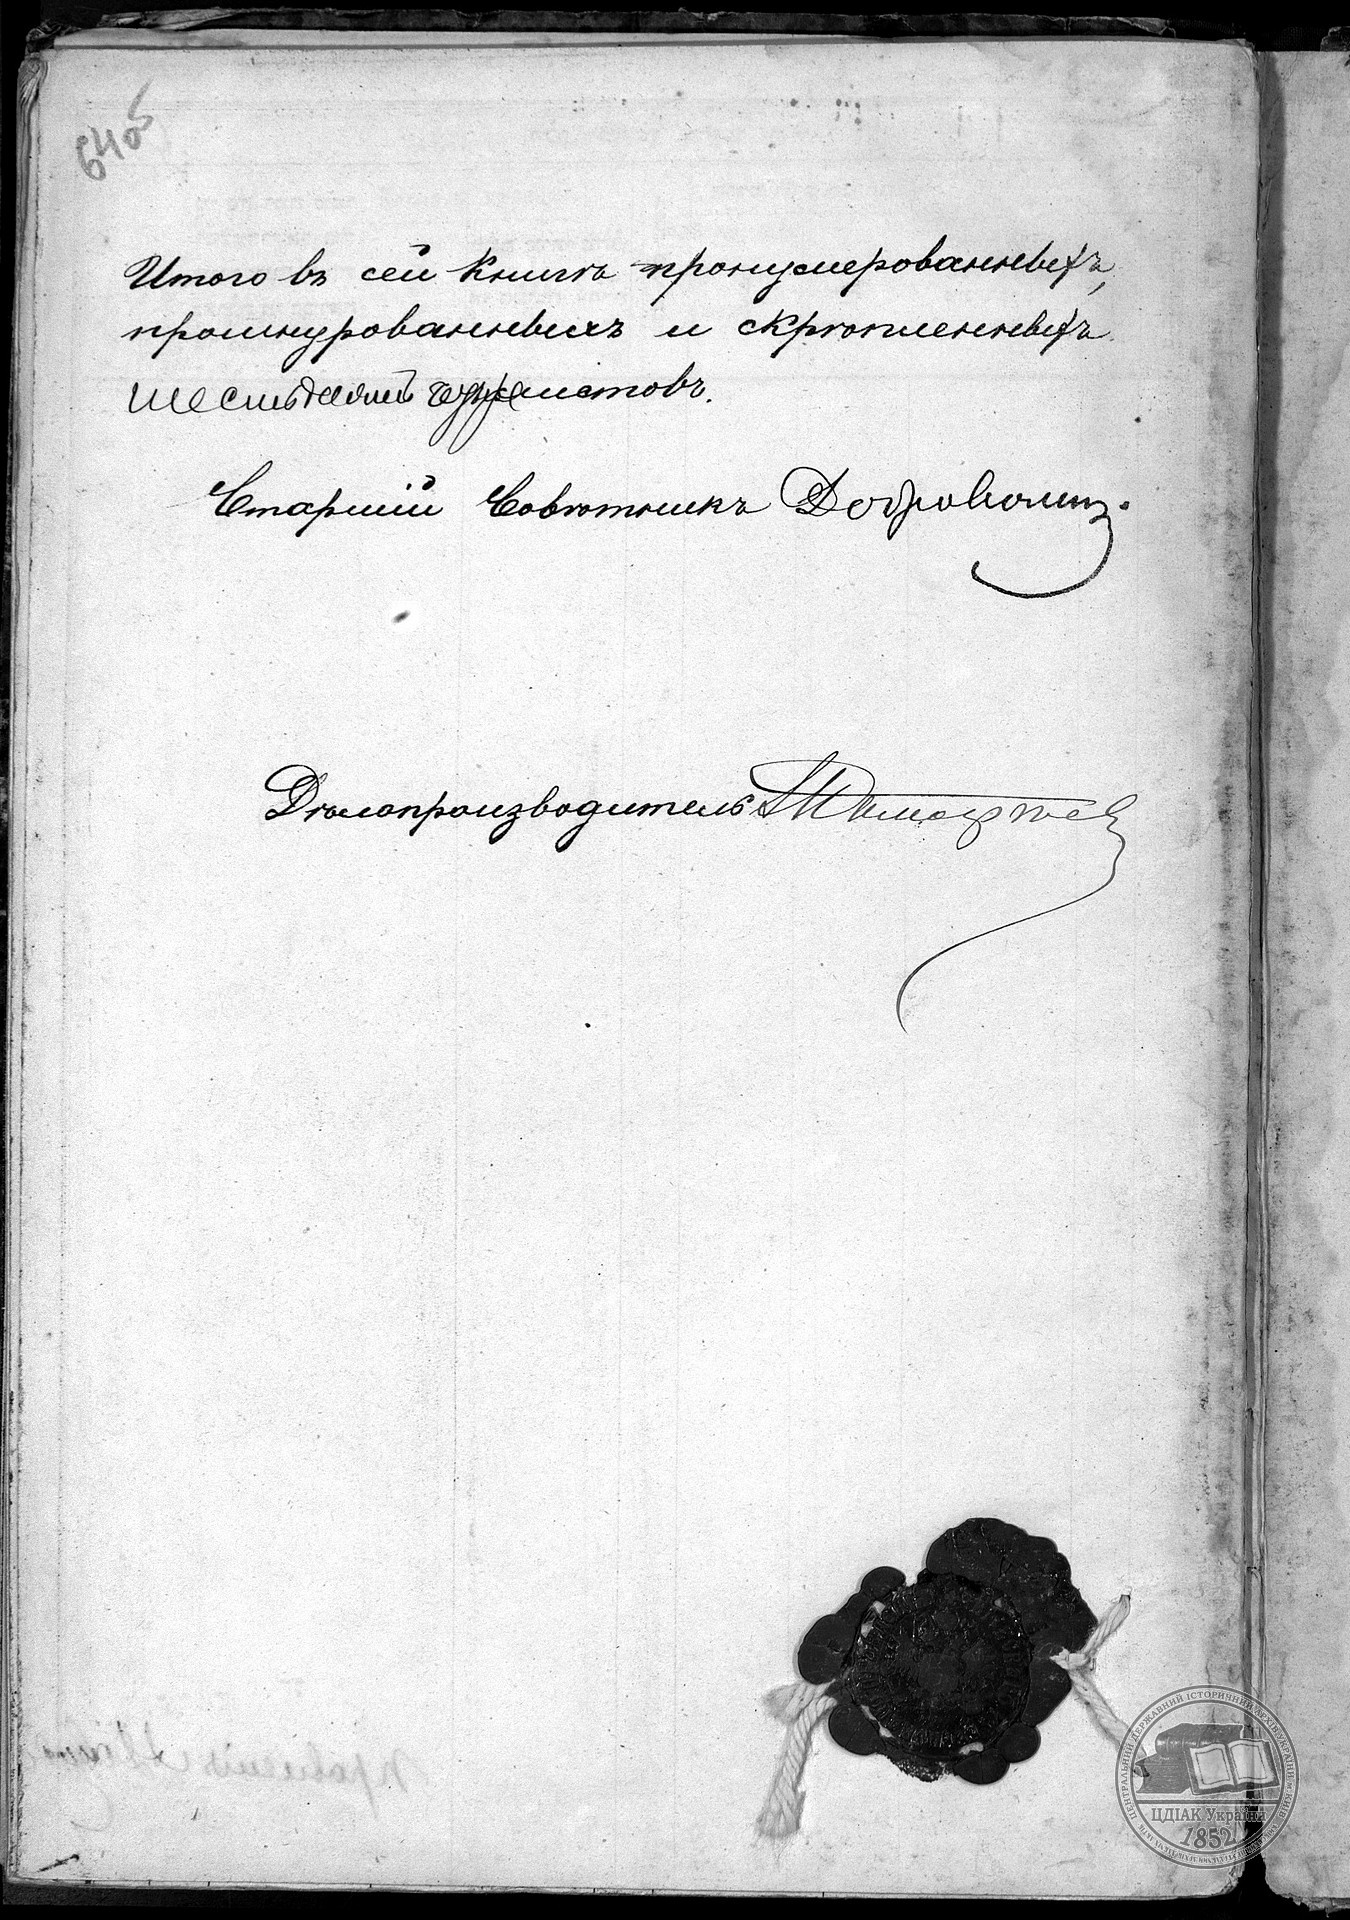 64об
Итого въ сей книгѣ пронумерованныхъ,
прошнурованныхъ и скрѣпленныхъ
шестьдесятъ четыре листовъ.
Старшій Совѣтникъ
Дѣлопроизводитель
ЦЕНТРАЛЬНИЙ ДЕРЖАВНИЙ ІСТОРИЧНИЙ АРХІВ УКРАЇНИ, м. КИЇВ
ЦДІАК України
1852